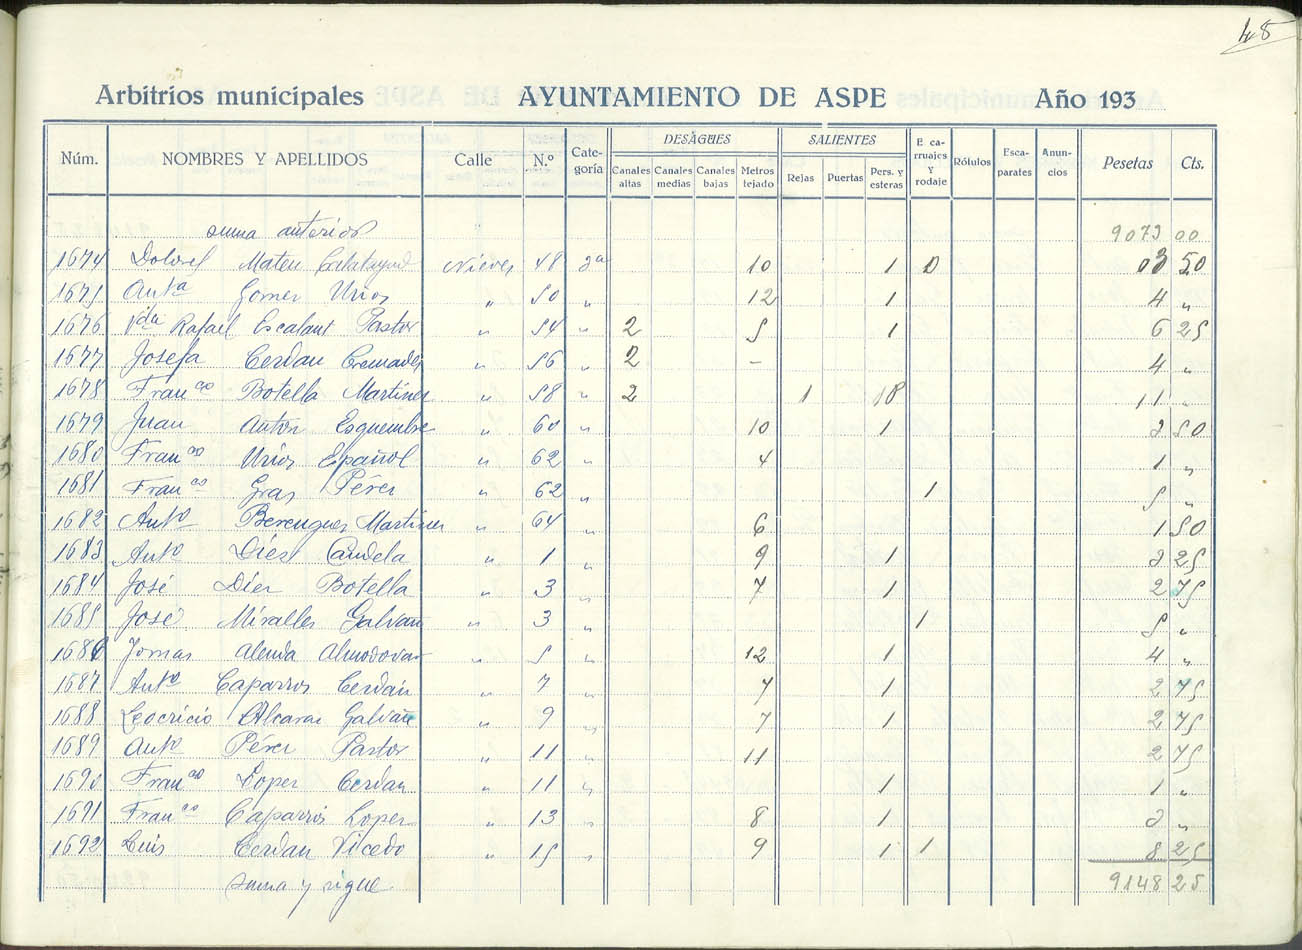 48
Arbitrios municipales AYUNTAMIENTO DE ASPE Año 193
Núm. NOMBRES Y APELLIDOS Calle N.º Cate-goría DESAGÜES Canales altas Canales medias Canales bajas Metros tejado SALIENTES Rejas Puertas Pers. y esteras E. ca-rruajes y rodaje Rótulos Esca-parates Anun-cios Pesetas Cts.
suma anterior 9073 00
1674 Dolores Mateu Calatayud Nieves 48 3ª 10 1 0 03 50
1675 Antª Gomer Urios " 50 " 12 1 4 "
1676 Vda Rafael Escalant Pastor " 54 " 2 5 1 6 25
1677 Josefa Cerdan Cremades " 56 " 2 - 4 "
1678 Franco Botella Martiner " 58 " 2 1 18 11 "
1679 Juan Anton Esquembre " 60 " 10 1 3 50
1680 Franco Urios Español " 62 " 4 1 "
1681 Franco Gras Pérer " 62 " 1 5 "
1682 Anto Berenguer Martiner " 64 " 6 1 50
1683 Anto Dies Candela " 1 " 9 1 3 25
1684 José Dier Botella " 3 " 7 1 2 75
1685 José Miralles Galvañ " 3 " 1 5 "
1686 Tomas Alenda Almodovar " 5 " 12 1 4 "
1687 Anto Caparros Cerdán " 7 " 7 1 2 75
1688 Leocricio Alcarar Galvañ " 9 " 7 1 2 75
1689 Anto Pérer Pastor " 11 " 11 2 75
1690 Franco Loper Cerdan " 11 " 1 1 "
1691 Franco Caparros Loper " 13 " 8 1 3 "
1692 Luis Cerdan Vicedo " 15 " 9 1 1 8 25
suma y sigue 9148 25